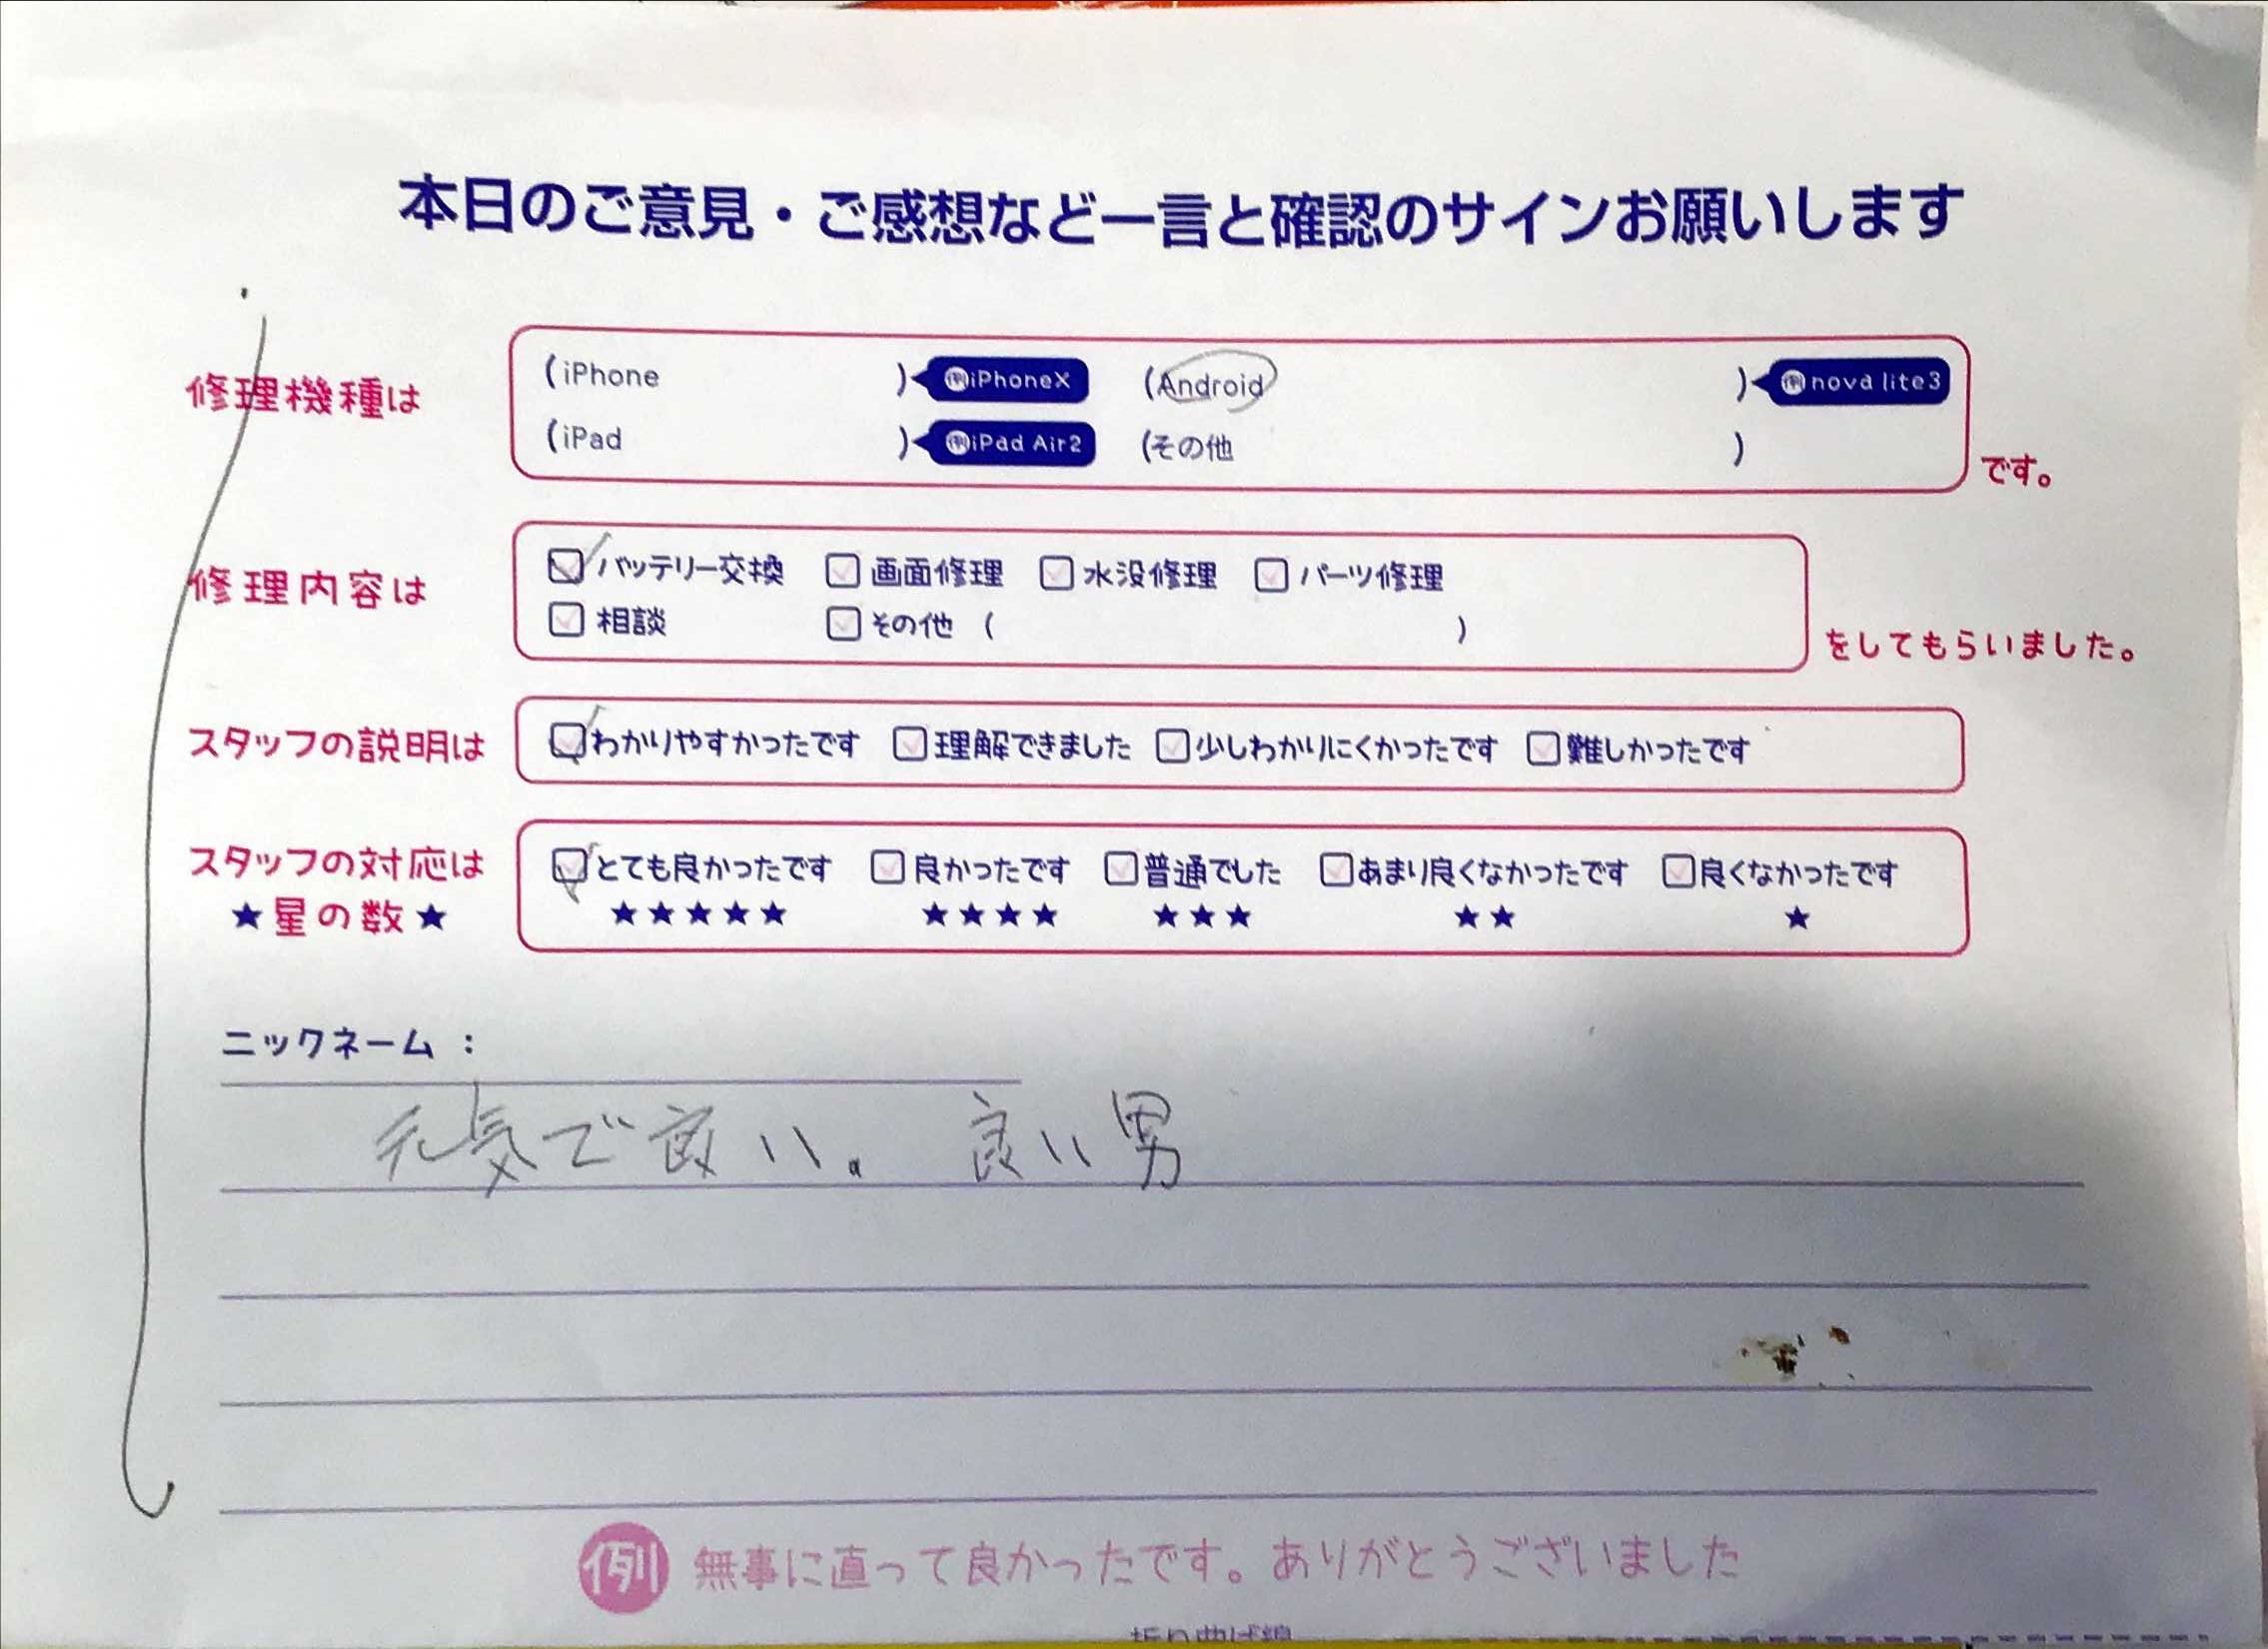 本日のご意見・ご感想など一言と確認のサインお願いします
修理機種は (iPhone )例iPhoneX (Android )例nova lite3
(iPad )例iPad Air2 (その他 ) です。
修理内容は バッテリー交換 画面修理 水没修理 パーツ修理
相談 その他 ( ) をしてもらいました。
スタッフの説明は わかりやすかったです 理解できました 少しわかりにくかったです 難しかったです
スタッフの対応は とても良かったです 良かったです 普通でした あまり良くなかったです 良くなかったです
★星の数★ ★★★★★ ★★★★ ★★★ ★★ ★
ニックネーム：
元気で良い。 良い男
例 無事に直って良かったです。ありがとうございました
折り曲げ線